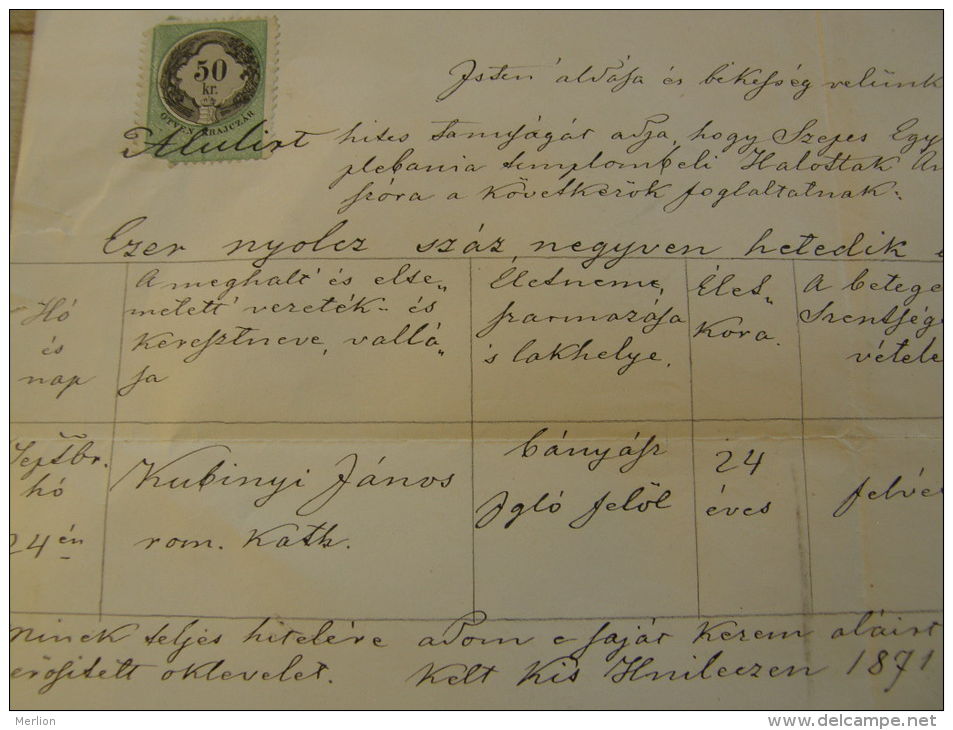 50
kr.
ÖTVEN KRAJCZÁR
Isten áldása és békesség velünk
Alulirt hites tanuságát adja, hogy Szepes Egy
plebania templombeli Halottak An
szóra a következők foglaltatnak:
Ezer nyolcz száz negyven hetedik
Hó
és
nap
A meghalt és elte„
metett vezeték- és
keresztneve, vallá„
sa
Életneme,
szarmazása
's lakhelye.
Élet„
kora.
A betege
Szentsége
vétele
Septbr.
hó
24én
Kubinyi János
rom. kath.
bányász
Igló felöl
24
éves
felve
minek teljes hiteléré adom e saját kezem aláirt
erösitett oklevelet. Kelt Kis Hnileczen 1871
Merlion
www.delcampe.net